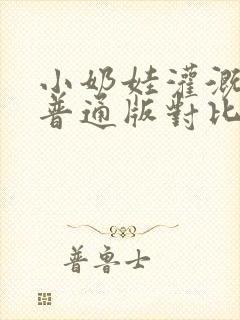 小奶娃灌溉
普通版對比
普魯士